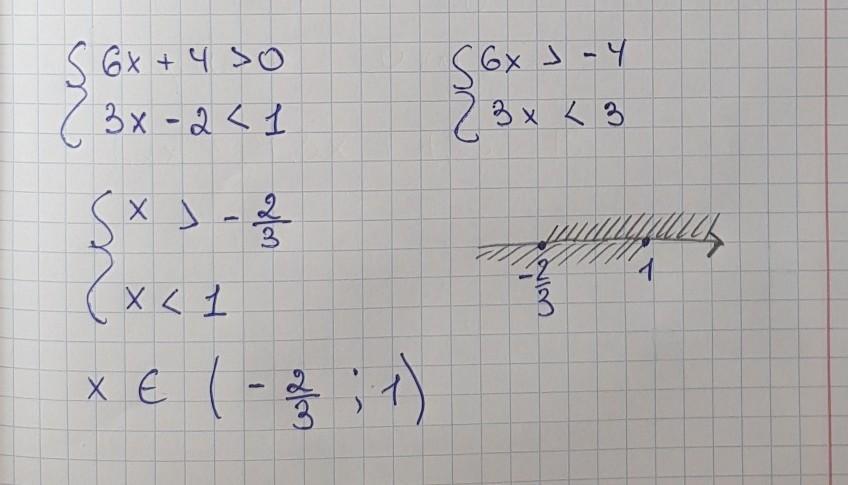 6x + 4 > 0
3x - 2 < 1
6x > -4
3x < 3
x > - 2/3
x < 1
- 2/3 1
x ∈ ( - 2/3 ; 1)